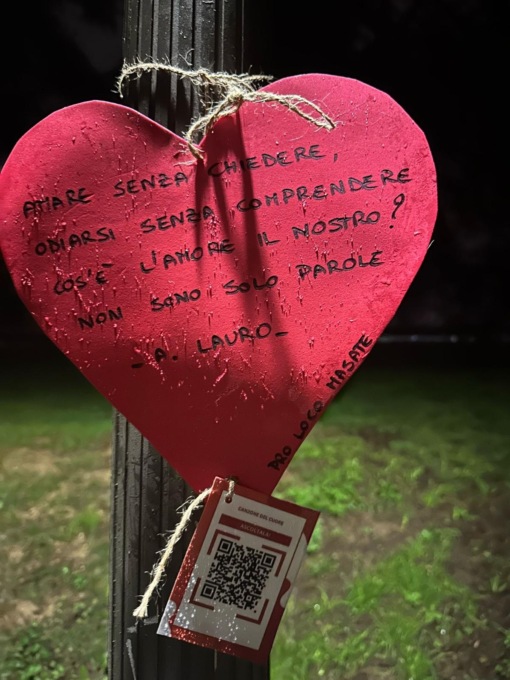 AMARE SENZA CHIEDERE,
ODIARSI SENZA COMPRENDERE
COS'È L'AMORE IL NOSTRO?
NON SONO SOLO PAROLE
-A. LAURO-
PRO LOCO MASATE
CANZONI DEL CUORE
ASCOLTALA!